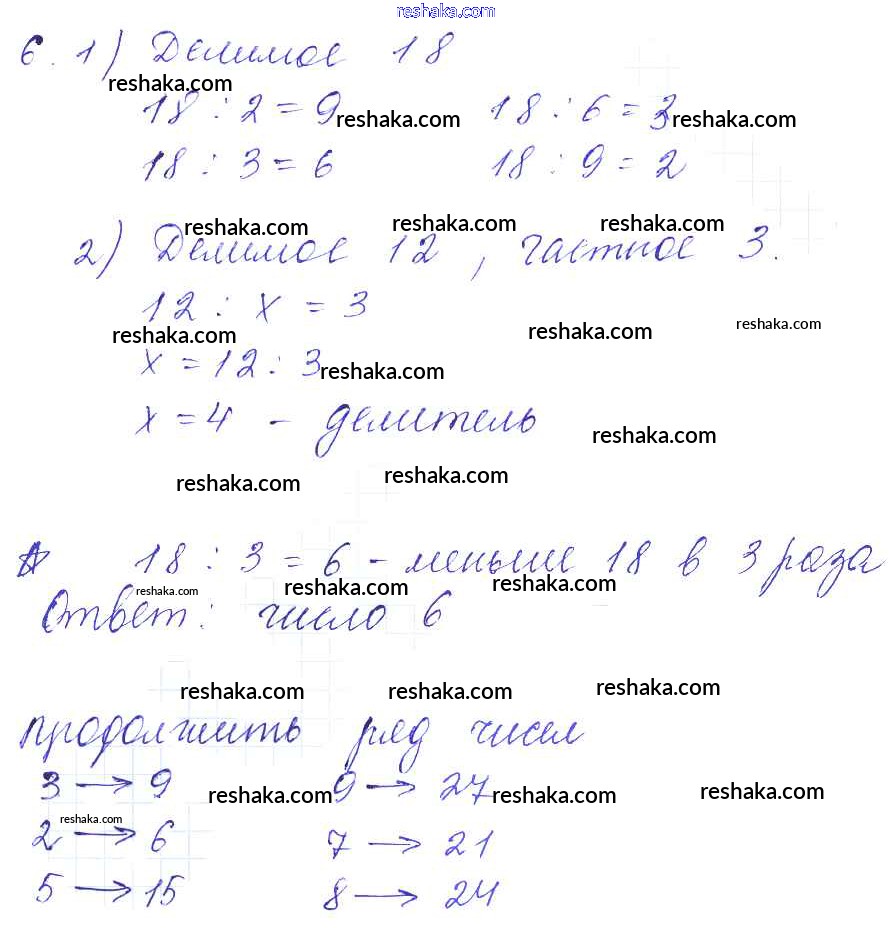 reshaka.com
6. 1) Делимое 18
reshaka.com
18 : 2 = 9 18 : 6 = 3
reshaka.com reshaka.com
18 : 3 = 6 18 : 9 = 2
reshaka.com reshaka.com reshaka.com
2) Делимое 12, частное 3.
12 : x = 3
reshaka.com reshaka.com reshaka.com
x = 12 : 3
reshaka.com
x = 4 - делитель
reshaka.com
reshaka.com reshaka.com
18 : 3 = 6 - меньше 18 в 3 раза
reshaka.com reshaka.com reshaka.com
Ответ: число 6
reshaka.com reshaka.com reshaka.com
продолжить ряд чисел
3 → 9 9 → 27
reshaka.com reshaka.com reshaka.com
reshaka.com
2 → 6 7 → 21
5 → 15 8 → 24